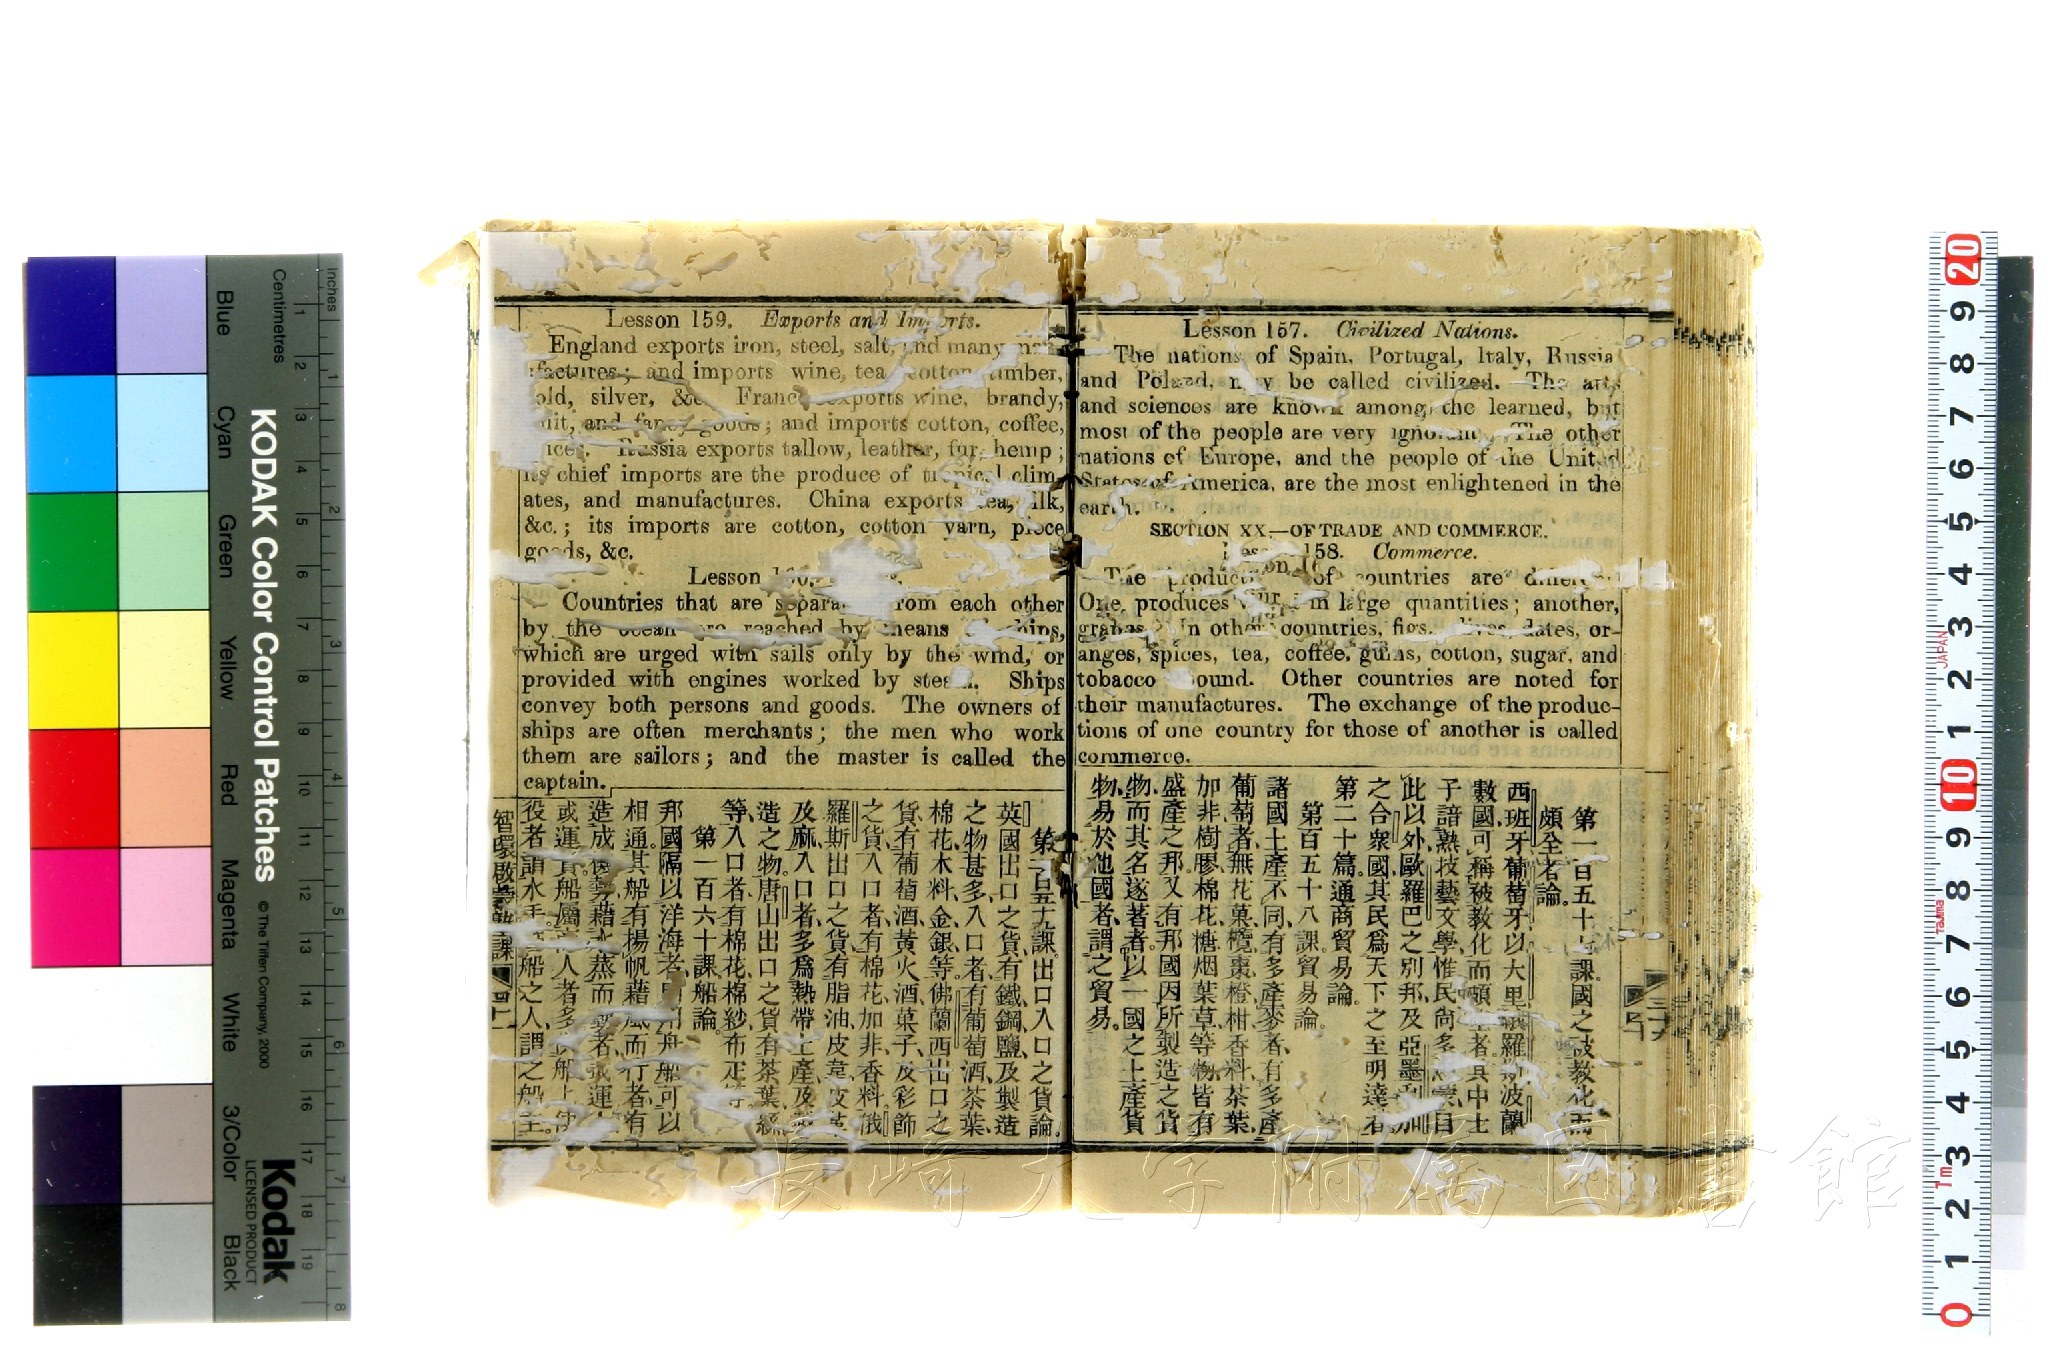 Lesson 157. Civilized Nations.
The nations of Spain, Portugal, Italy, Russia
and Poland, may be called civilized. The arts
and sciences are known among the learned, but
most of the people are very ignorant. The other
nations of Europe, and the people of the United
States of America, are the most enlightened in the
earth.
SECTION XX.—OF TRADE AND COMMERCE.
158. Commerce.
The of countries are
One produces in large quantities; another,
In other countries, figs, dates, or-
anges, spices, tea, coffee, gums, cotton, sugar, and
tobacco ound. Other countries are noted for
their manufactures. The exchange of the produc-
tions of one country for those of another is called
commerce.
第一百五十七課國之被教化而
頗全者論。
西班牙葡萄牙以大里羅波蘭
數國可稱被教化而者其中士
子諳熟技藝文學惟民尙多目
此以外歐羅巴之別邦及亞墨利加
之合衆國其民爲天下之至明達者
第二十篇通商貿易論。
第百五十八課貿易論。
諸國土產不同有多產麥者有多產
葡萄者無花菓欖棗橙柑香料茶葉
加非樹膠棉花糖烟葉草等物皆有
盛產之邦又有邦國因所製造之貨
物而其名遂著者以一國之土產貨
物易於他國者謂之貿易。
Lesson 159. Exports and Imports.
England exports iron, steel, salt, and many
factures; and imports wine, tea cotton timber,
old, silver, &c. France exports wine, brandy,
uit, and fancy goods; and imports cotton, coffee,
Russia exports tallow, leather, fur, hemp;
its chief imports are the produce of tropical clim-
ates, and manufactures. China exports tea, silk,
&c.; its imports are cotton, cotton yarn, piece
goods, &c.
Lesson
Countries that are separa from each other
by the ocean are reached by means of ships,
which are urged with sails only by the wind, or
provided with engines worked by steam. Ships
convey both persons and goods. The owners of
ships are often merchants; the men who work
them are sailors; and the master is called the
captain.
第一百五十九課出口入口之貨論。
英國出口之貨有鐵鋼鹽及製造
之物甚多入口者有葡萄酒茶葉
棉花木料金銀等佛蘭西出口之
貨有葡萄酒黃火酒菓子及彩飾
之貨入口者有棉花加非香料俄
羅斯出口之貨有脂油皮韋
及麻入口者多爲熱帶土產及
造之物唐山出口之貨有茶葉絲
等入口者有棉花棉紗布疋等
第一百六十課船論。
邦國隔以洋海者用船可以
相通其船有揚帆藉風而行者有
造成蒸而者或運
或運貨船屬人者多船上
役者謂水手船之人謂之船主
智環啟蒙塾課 四十一
KODAK Color Control Patches
© The Tiffen Company, 2000
Kodak
LICENSED PRODUCT
Inches
Centimetres
Blue
Cyan
Green
Yellow
Red
Magenta
White
3/Color
Black
1 2 3 4 5 6 7 8
1 2 3 4 5 6 7 8 9 10 11 12 13 14 15 16 17 18 19
20 9 8 7 6 5 4 3 2 1 10 9 8 7 6 5 4 3 2 1 0
JAPAN
Tajima
1m
長崎大学附属図書館